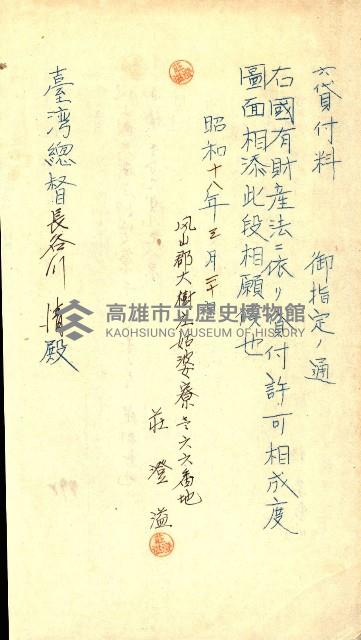 六貸付料 御指定ノ通
右國有財産法ニ依リ貸付許可相成度
圖面相添此段相願候也
昭和十八年三月二十日
鳳山郡大樹庄姑婆寮三六六番地
莊 澄 溢
臺湾總督長谷川 清殿
高雄市立歷史博物館
KAOHSIUNG MUSEUM OF HISTORY